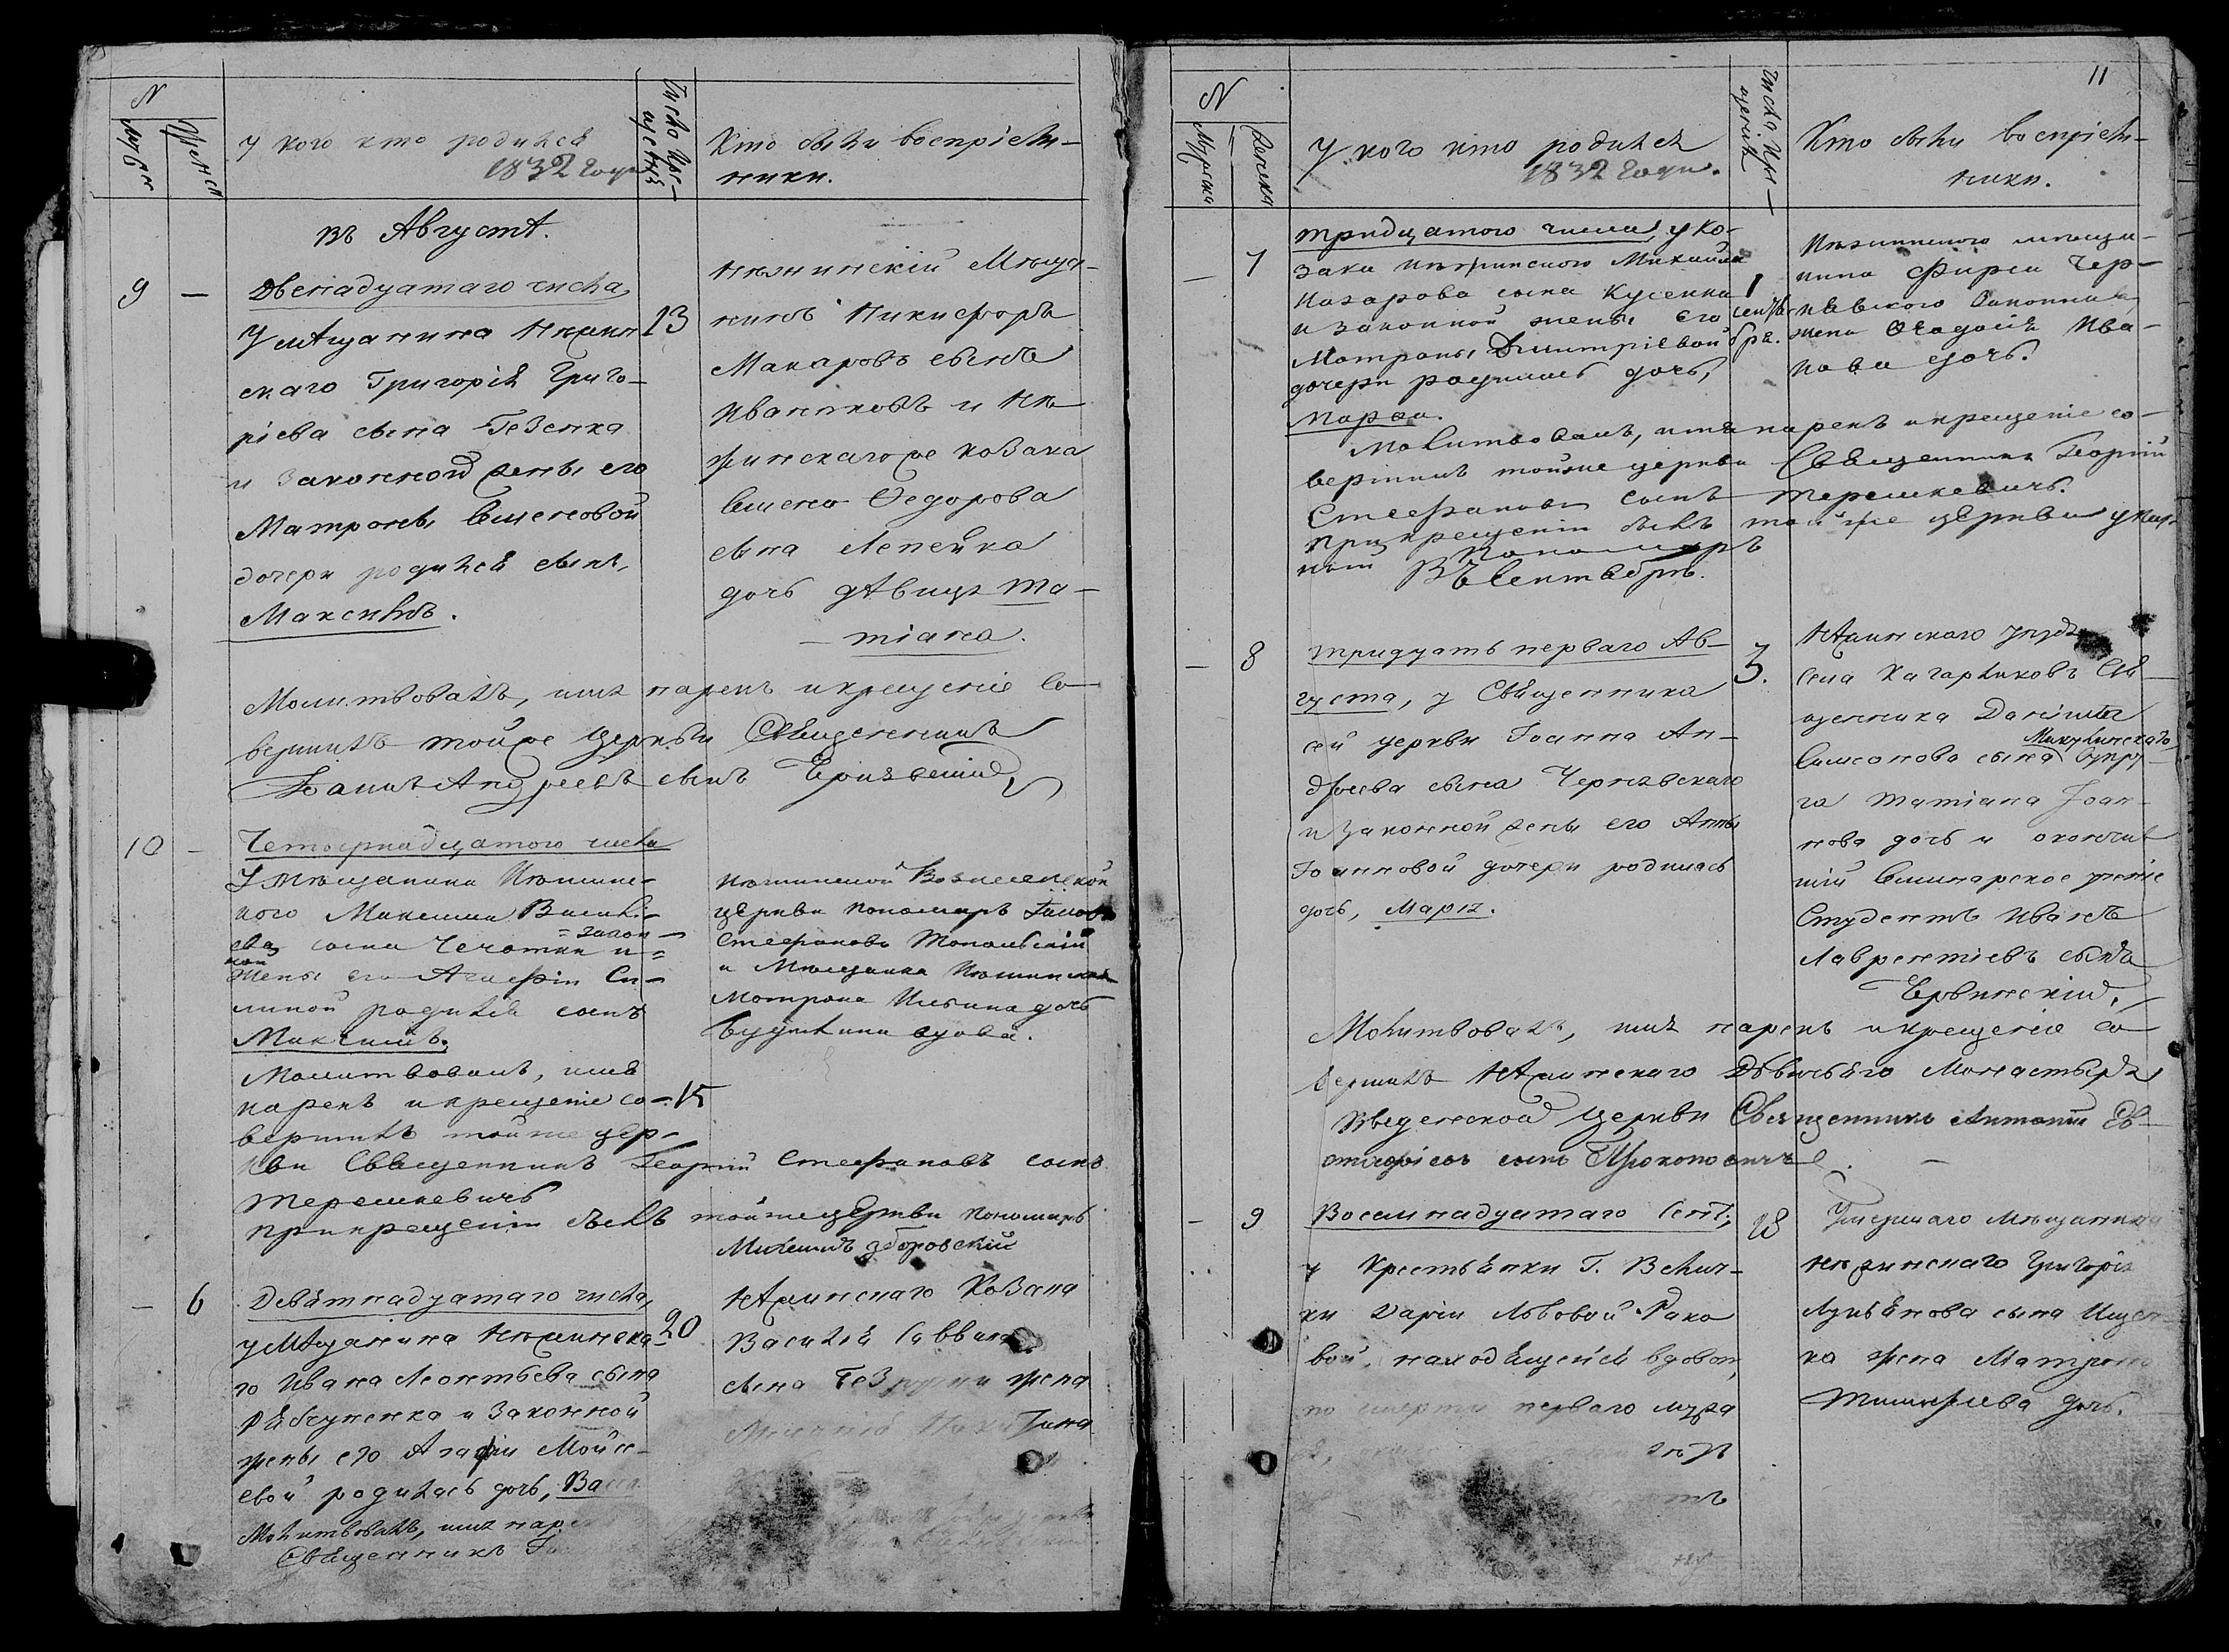 N
Муж:
Женск
У кого кто родился
1832 года
Число Кре-
щенія
Кто были воспріем-
ники.
въ Августѣ.
9 —
Двенадцатаго числа,
У мѣщанина Нѣжин
скаго Григорія Григо-
ріева сына Гезенка
и законной жены его
Матроны Семеновой
дочери родился сынъ,
Максимъ.
13
Нѣжинскій Мѣща-
нинъ Никифоръ
Макаровъ сынъ
Иваниковъ и Нѣ
жинскаго же козака
Семена Федорова
сына Лепейка
дочь дѣвица Та-
тіана.
Молитвовалъ, имя нарекъ и крещеніе со-
вершилъ тойже церкви Священникъ
Іоаннъ Андреевъ сынъ Чернявскій
10 —
Четырнадцатого числа
У Мѣщанина Нѣжинс-
кого Максима Василі-
ева сына Чечотки и = закон-
ной
жены его Агафіи Си-
линой родился сынъ
Максимъ.
Молитвовалъ, имя
нарекъ и крещеніе со-
15
вершилъ тойже цер-
кви Священникъ Георгій Стефановъ сынъ
Терешкевичъ
При крещеніи былъ тойже церкви Пономарь
Михаилъ Зборовскій
Нѣжинской Вознесенской
церкви пономарь
Стефановъ Топольскій
и Мѣщанка Нѣжинская
Мотрона Ильина дочь
вдова.
— 6
Девятнадцатаго числа,
у мѣщанина Нѣжинска-
го Ивана Леонтьева сына
Рябчуненка и законной
жены его Агафіи Мойсе-
евой родилась дочь,
20
Нѣжинскаго Козака
Василія Саввина
сына жена
Молитвовалъ, имя нарекъ
Священникъ
11
N
Мужска
Женска
У кого кто родился
1832 года.
Число Кре-
щенія
Кто были воспріем-
ники.
— 7
тридцатого числа, у ко-
зака Нѣжинского Михайла
Назарова сына Кусенка
и законной жены его
Мотроны Димитріевой
дочери родилась дочь,
Марфа.
1
сентя-
бря.
Нѣжинского мѣща-
нина Фирса Чер-
нявского законная
жена Феодосія Ива-
нова дочь.
Молитвовалъ, имя нарекъ и крещеніе со-
вершилъ тойже церкви Священникъ Георгій
Стефановъ сынъ Терешкевичъ.
При крещеніи былъ той же церкви
Пономарь
Въ Сентябрѣ.
— 8
тридцать перваго Ав-
густа, у Священника
сей церкви Іоанна Ан-
дреева сына Чернявскаго
и законной жены его Анны
Іоанновой дочери родилась
дочь, Марія.
3.
Нѣжинскаго уѣзда
села Кагарликовъ Свя-
щенника Даніила
Микулинскаго
Симеонова сына Супру-
га Татіана Іоан-
нова дочь и окончив
шій Семинарское ученіе
Студентъ Иванъ
Лаврентіевъ сынъ
Червинскій.
Молитвовалъ, имя нарекъ и крещеніе со
вершилъ Нѣжинскаго Дѣвичьяго Монастыря
Введенской Церкви Священникъ Антоній Ев-
стафіевъ сынъ Прокоповичъ.
— 9
Восемнадцатаго Сент.,
у Крестьянки Г. Велич-
ки Даріи Львовой Рако
вой, находящейся вдовою
по смерти перваго мужа
18
Умершаго мѣщанина
Нѣжинскаго Григорія
Лукьянова сына Ищен
ка жена Матрона
Тимофеева дочь.